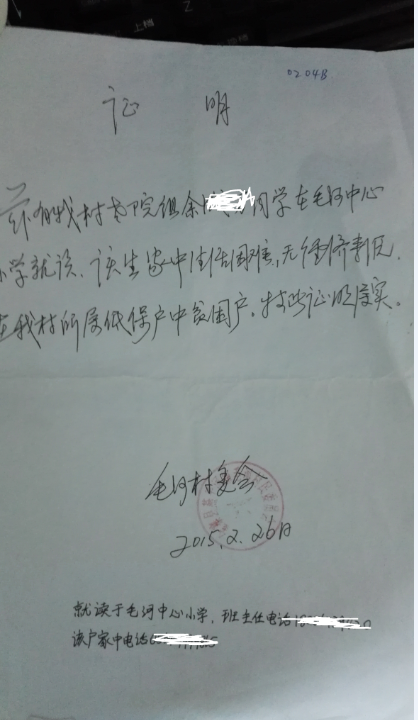 0204B
证 明
兹有我村书院组余 同学在毛河中心
小学就读。该生家中生活困难,无经济来源,
在我村所属低保户中贫困户。特此证明属实。
毛河村委会
2015.2.26日
就读于毛河中心小学,班主任电话
该户家中电话